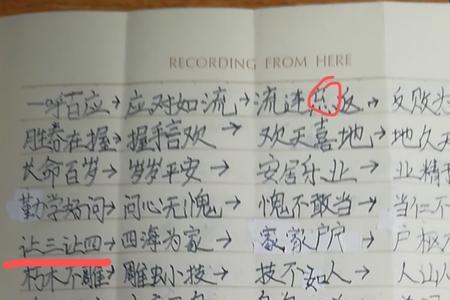 RECORDING FROM HERE
一呼百应→应对如流→流连忘返→反败为
胜券在握→握手言欢→欢天喜地→地久天
长命百岁→岁岁平安→安居乐业→业精于
勤学好问→问心无愧→愧不敢当→当仁不
让三让四→四海为家→家家户户→户枢不
朽木不雕→雕虫小技→技不如人→人山人